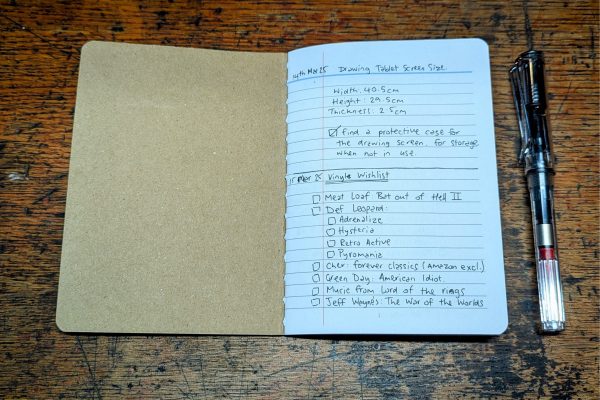 14th Mar 25 Drawing Tablet Screen Size.
Width: 40.5cm
Height: 29.5cm
Thickness: 2.5cm
☑ find a protective case for
the drawing screen. for storage
when not in use.
15 Mar 25 Vinyls Wishlist
☐ Meat Loaf: Bat out of Hell II
☐ Def Leopard:
☐ Adrenalize
☐ Hysteria
☐ Retro Active
☐ Pyromania
☐ Cher: forever classics (Amazon excl.)
☐ Green Day: American Idiot.
☐ Music from Lord of the rings
☐ Jeff Waynes: The War of the Worlds